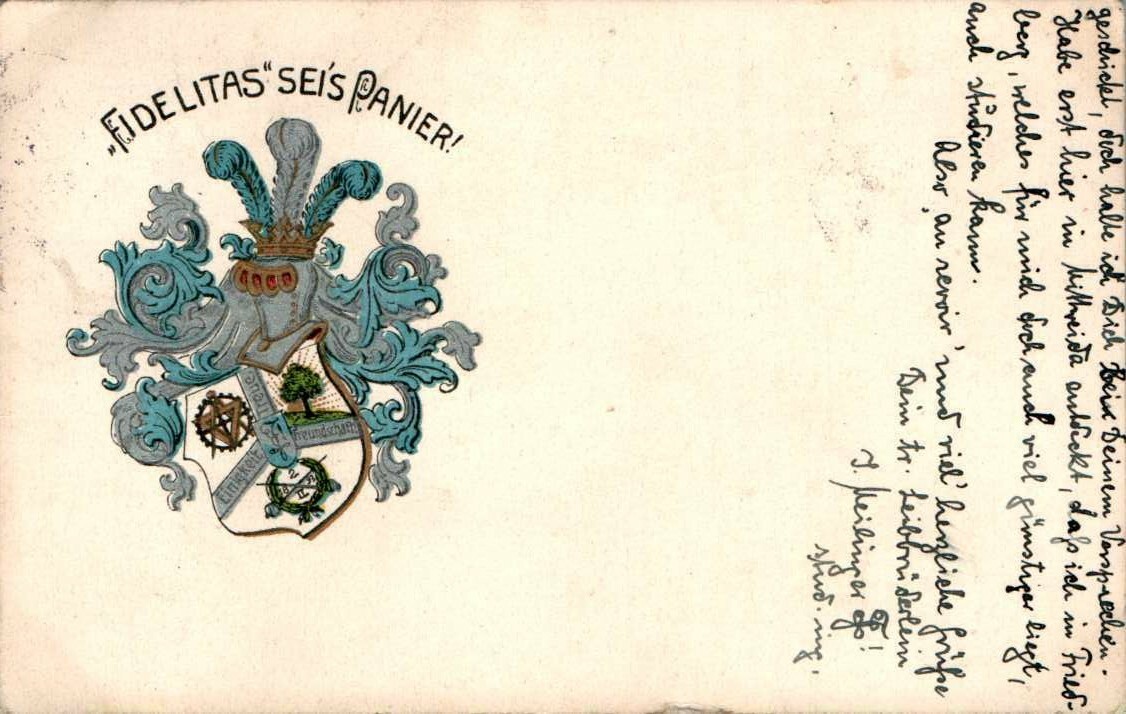 „FIDELITAS“ SEI'S PANIER!
Treue
Freundschaft
Einigkeit
2
II
geschickt, doch halte ich Dich Deinem Versprechen.
Habe erst hier in Mittweida entdeckt, daß ich in Fried-
berg, welches für mich doch auch viel günstiger liegt,
auch studieren kann.
Also ‚au revoir‘ und viel' herzliche Grüße
Dein tr. Leibbrüderlein
J. Meilinger
stud. ing.